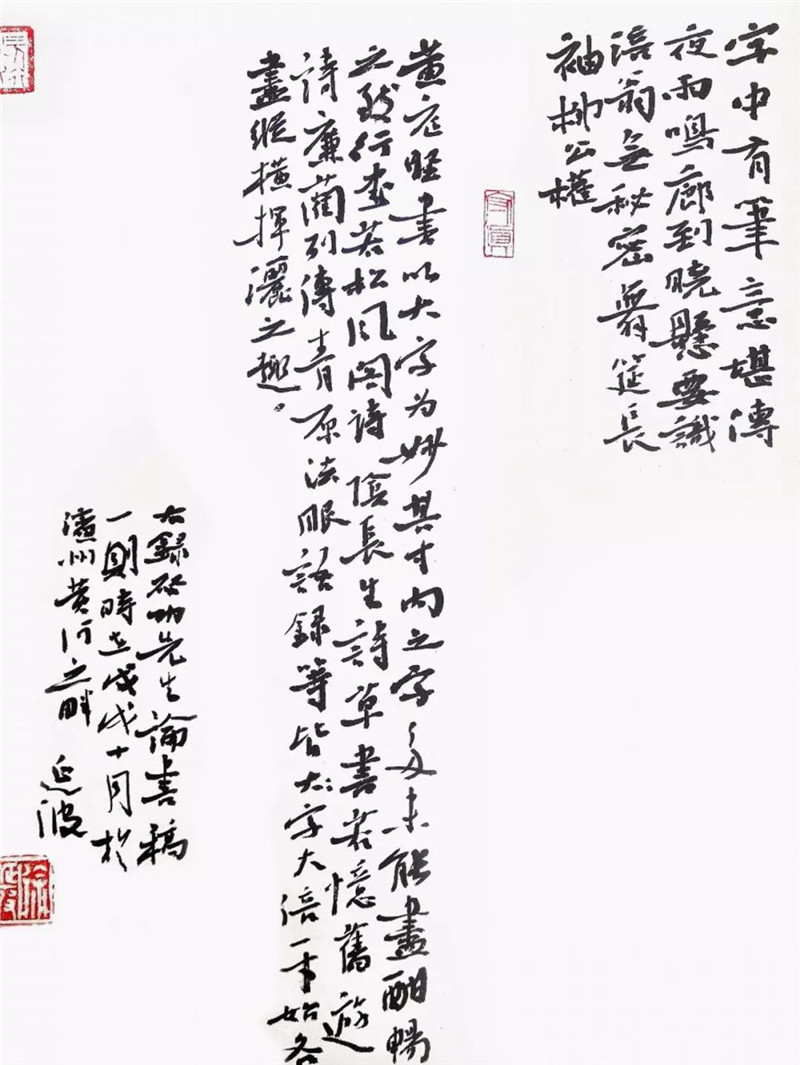 字中有筆意堪傳
夜雨鳴廊到曉懸要識
涪翁無秘密舞筵長
袖柳公權
黄庭堅書以大字为妙其寸内之字多未能盡酣暢
之致行書若松风阁詩陰長生詩草書若憶舊遊
詩廉藺列傳青原法眼語録等皆大字大倍一寸始各
盡縱横揮灑之趣。
右錄启功先生論書稿
一則時在戊戌十月於
州黄河之畔 延波